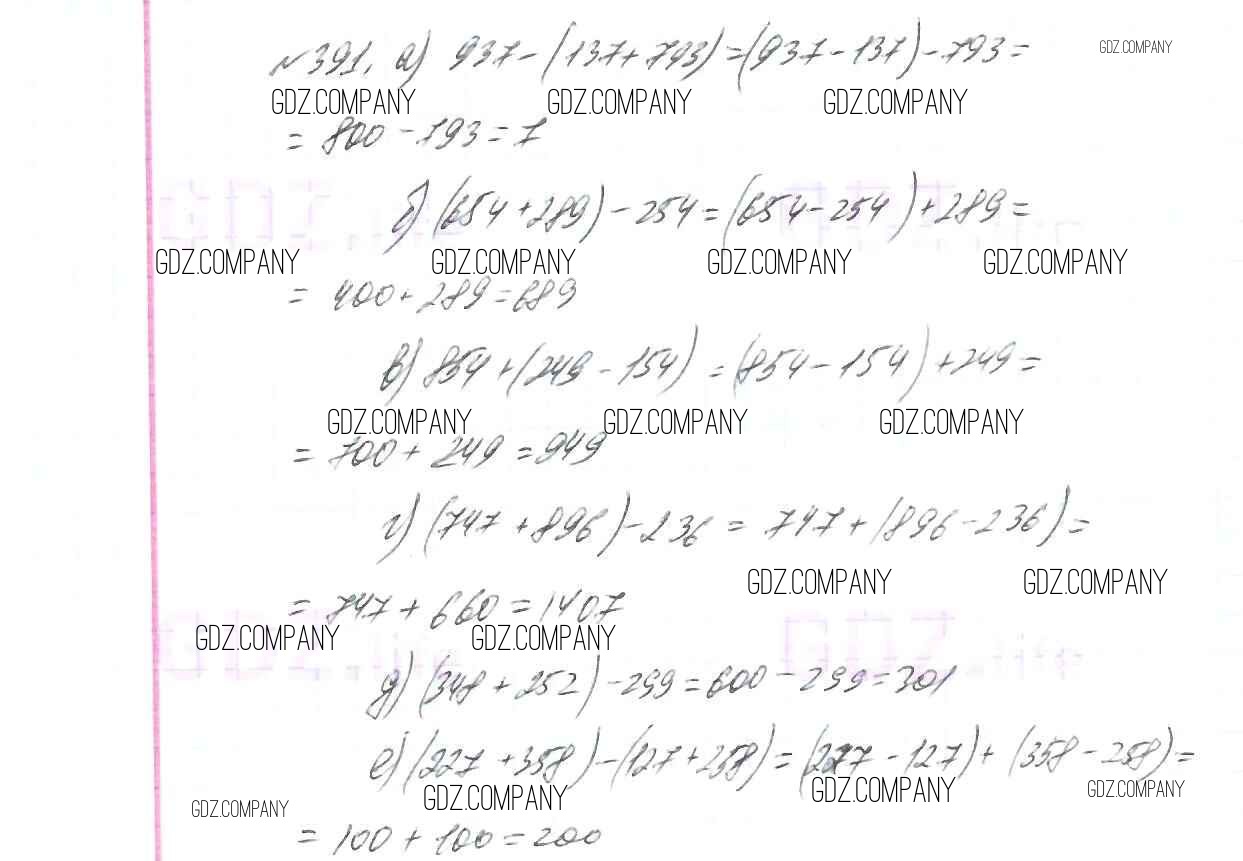 №391. а) 937-(137+793)=(937-137)-793=
GDZ.COMPANY
GDZ.COMPANY GDZ.COMPANY GDZ.COMPANY
= 800-793=7
б) (654+289)-254=(654-254)+289=
GDZ.COMPANY GDZ.COMPANY GDZ.COMPANY GDZ.COMPANY
= 400+289=689
в) 854+(249-154)=(854-154)+249=
GDZ.COMPANY GDZ.COMPANY GDZ.COMPANY
= 700+249=949
г) (747+896)-236=747+(896-236)=
GDZ.COMPANY GDZ.COMPANY
= 747+660=1407
GDZ.COMPANY GDZ.COMPANY
д) (348+252)-299=600-299=301
е) (227+358)-(127+258)=(227-127)+(358-258)=
GDZ.COMPANY GDZ.COMPANY GDZ.COMPANY GDZ.COMPANY
= 100+100=200